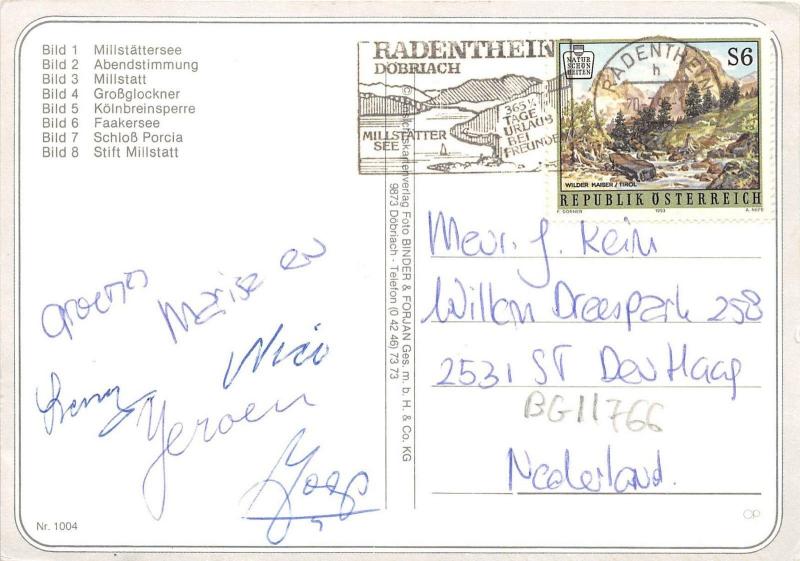 Bild 1 Millstättersee
Bild 2 Abendstimmung
Bild 3 Millstatt
Bild 4 Großglockner
Bild 5 Kölnbreinsperre
Bild 6 Faakersee
Bild 7 Schloß Porcia
Bild 8 Stift Millstatt
RADENTHEIN
DÖBRIACH
MILLSTÄTTER
SEE
365¼
TAGE
URLAUB
BEI
FREUNDEN
RADENTHEIN
h
NATUR
SCHÖN
HEITEN
S6
WILDER KAISER / TIROL
REPUBLIK ÖSTERREICH
1993
Foto BINDER & FORJAN Ges. m. b. H. & Co. KG
9873 Döbriach - Telefon (0 42 46) 73 73
Groetjes
Marise en
Nico
Jeroen
Joop
Mevr. J. Kein
Willem Dreespark 258
2531 ST Den Haag
BG11766
Nederland.
Nr. 1004